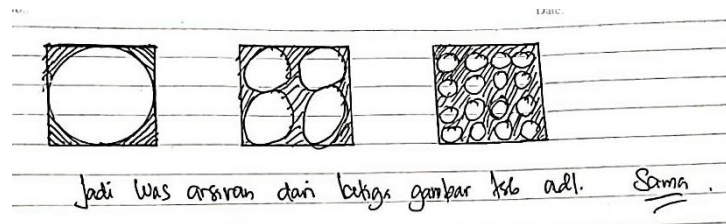 Date.
Jadi luas arsiran dari ketiga gambar tsb adl. Sama.